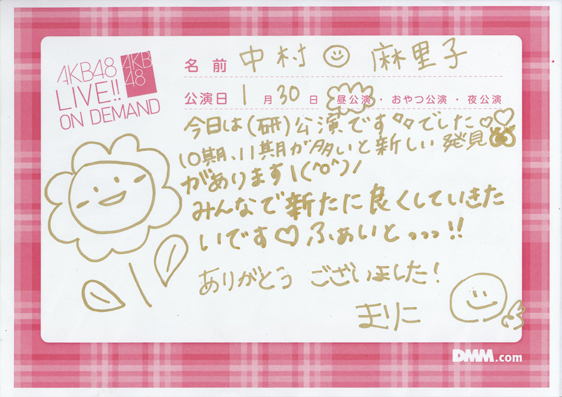 AKB48
LIVE!!
ON DEMAND
AKB
48
名前 中村 麻里子
公演日 1月30日 昼公演・おやつ公演・夜公演
今日は(研)公演です々々でした♡♡
10期、11期が多いと新しい発見
があります\(^o^)/
みんなで新たに良くしていきた
いです♡ふぁいとっっっ!!
ありがとう ございました!
まりこ
DMM.com